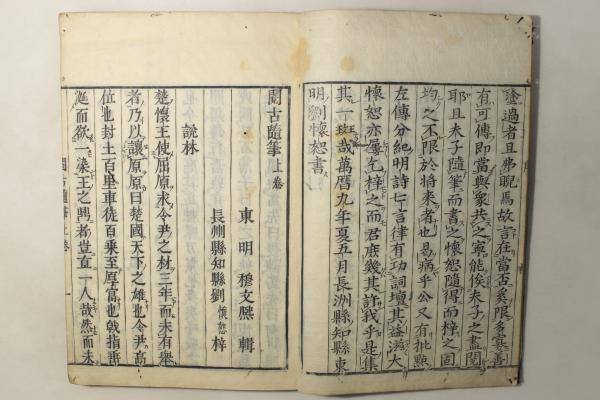 塗過者且弗睨焉故言在當否奚限多寡善
有可傳即當與衆共之寧能俟夫子之盡閱
耶且夫子隨筆而書之懷恕隨得而梓之固
均之不限於將來者也易病乎公又有批點
左傳分紀明詩七言律有功詞壇其益滋大
懷恕亦屢乞梓之而君庶幾其許我乎是集
其一班哉萬曆九年夏五月長洲縣知縣東
明劉懷恕書
閱古隨筆上卷
東明 穆文熙 輯
長洲縣知縣劉懷恕 梓
說林
楚懷王使屈原求令尹之材三年而未有舉
者乃以讓原原曰楚國天下之雄也令尹高
位也封土百里車徒百乘至厚富也戟指垂
涎而欲一染王之鼎者豈直一人哉然而未
閱古隨筆上卷